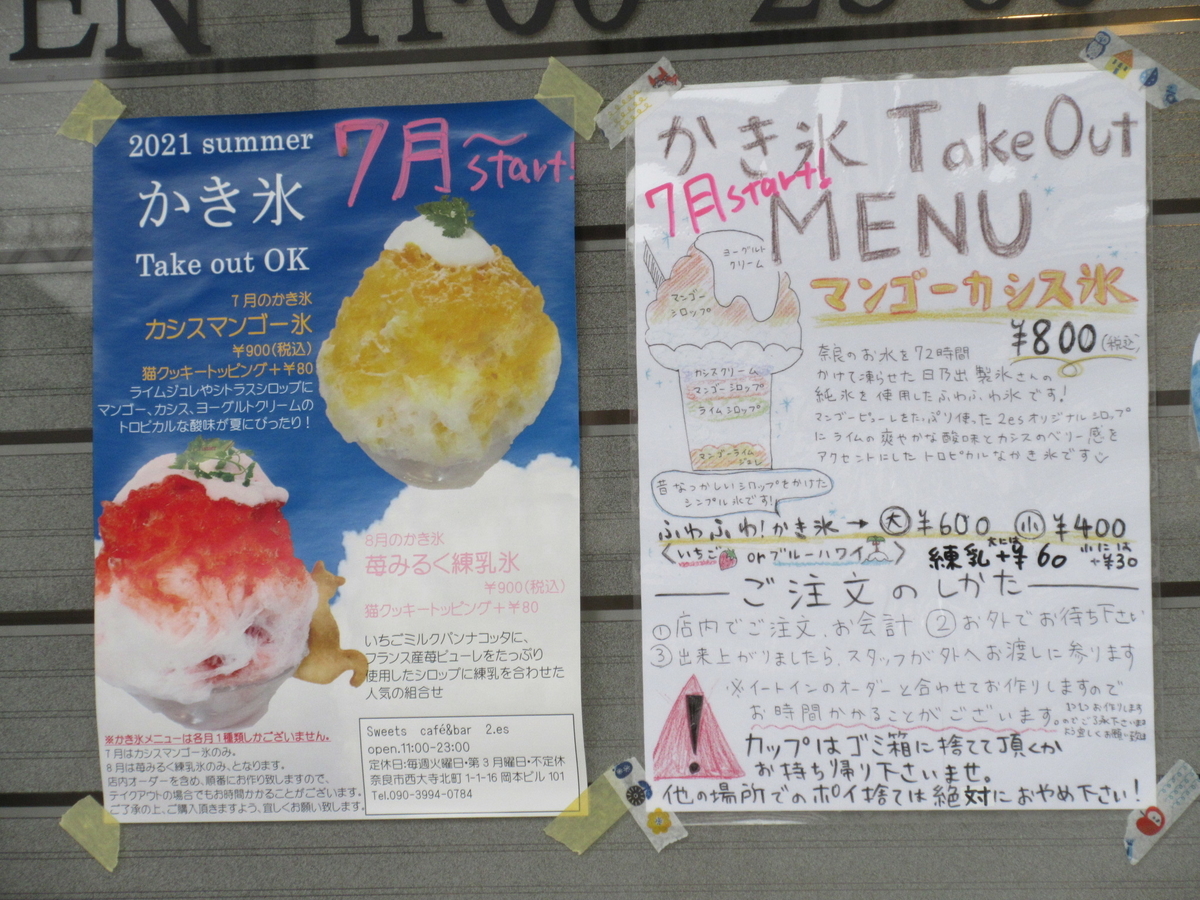 EN 11:00 23:00
2021 summer
7月～
start!
かき氷
Take out OK
7月のかき氷
カシスマンゴー氷
￥900(税込)
猫クッキートッピング＋￥80
ライムジュレやシトラスシロップに
マンゴー、カシス、ヨーグルトクリームの
トロピカルな酸味が夏にぴったり！
8月のかき氷
苺みるく練乳氷
￥900(税込)
猫クッキートッピング＋￥80
いちごミルクパンナコッタに、
フランス産苺ピューレをたっぷり
使用したシロップに練乳を合わせた
人気の組合せ
※かき氷メニューは各月1種類しかございません。
7月はカシスマンゴー氷のみ。
8月は苺みるく練乳氷のみ、となります。
店内オーダーを含め、順番にお作り致しますので、
テイクアウトの場合でもお時間かかることがございます。
ご了承の上、ご購入頂きますよう、宜しくお願い致します。
Sweets café&bar 2.es
open.11:00-23:00
定休日:毎週火曜日・第3月曜日・不定休
奈良市西大寺北町1-1-16 岡本ビル 101
Tel.090-3994-0784
かき氷 Take Out
7月start!
MENU
ヨーグルト
クリーム
マンゴー
シロップ
カシスクリーム
マンゴーシロップ
ライムシロップ
マンゴーライム
ジュレ
マンゴーカシス氷
￥800(税込)
奈良のお水を72時間
かけて凍らせた日乃出製氷さんの
純氷を使用したふわふわ氷です!
マンゴーピューレをたっぷり使った2esオリジナルシロップ
にライムの爽やかな酸味とカシスのベリー感を
アクセントにしたトロピカルなかき氷です
昔なつかしいシロップをかけた
シンプル氷です!
ふわふわ!かき氷→ 大 ￥600 小 ￥400
〈いちご orブルーハワイ〉 練乳 大には+￥60 小には+￥30
ご注文のしかた
① 店内でご注文、お会計 ② お外でお待ち下さい
③ 出来上がりましたら、スタッフが外へお渡しに参ります
※イートインのオーダーと合わせてお作りしますので
お時間かかることがございます。
カップはゴミ箱に捨てて頂くか
お持ち帰り下さいませ。
他の場所でのポイ捨ては絶対におやめ下さい!